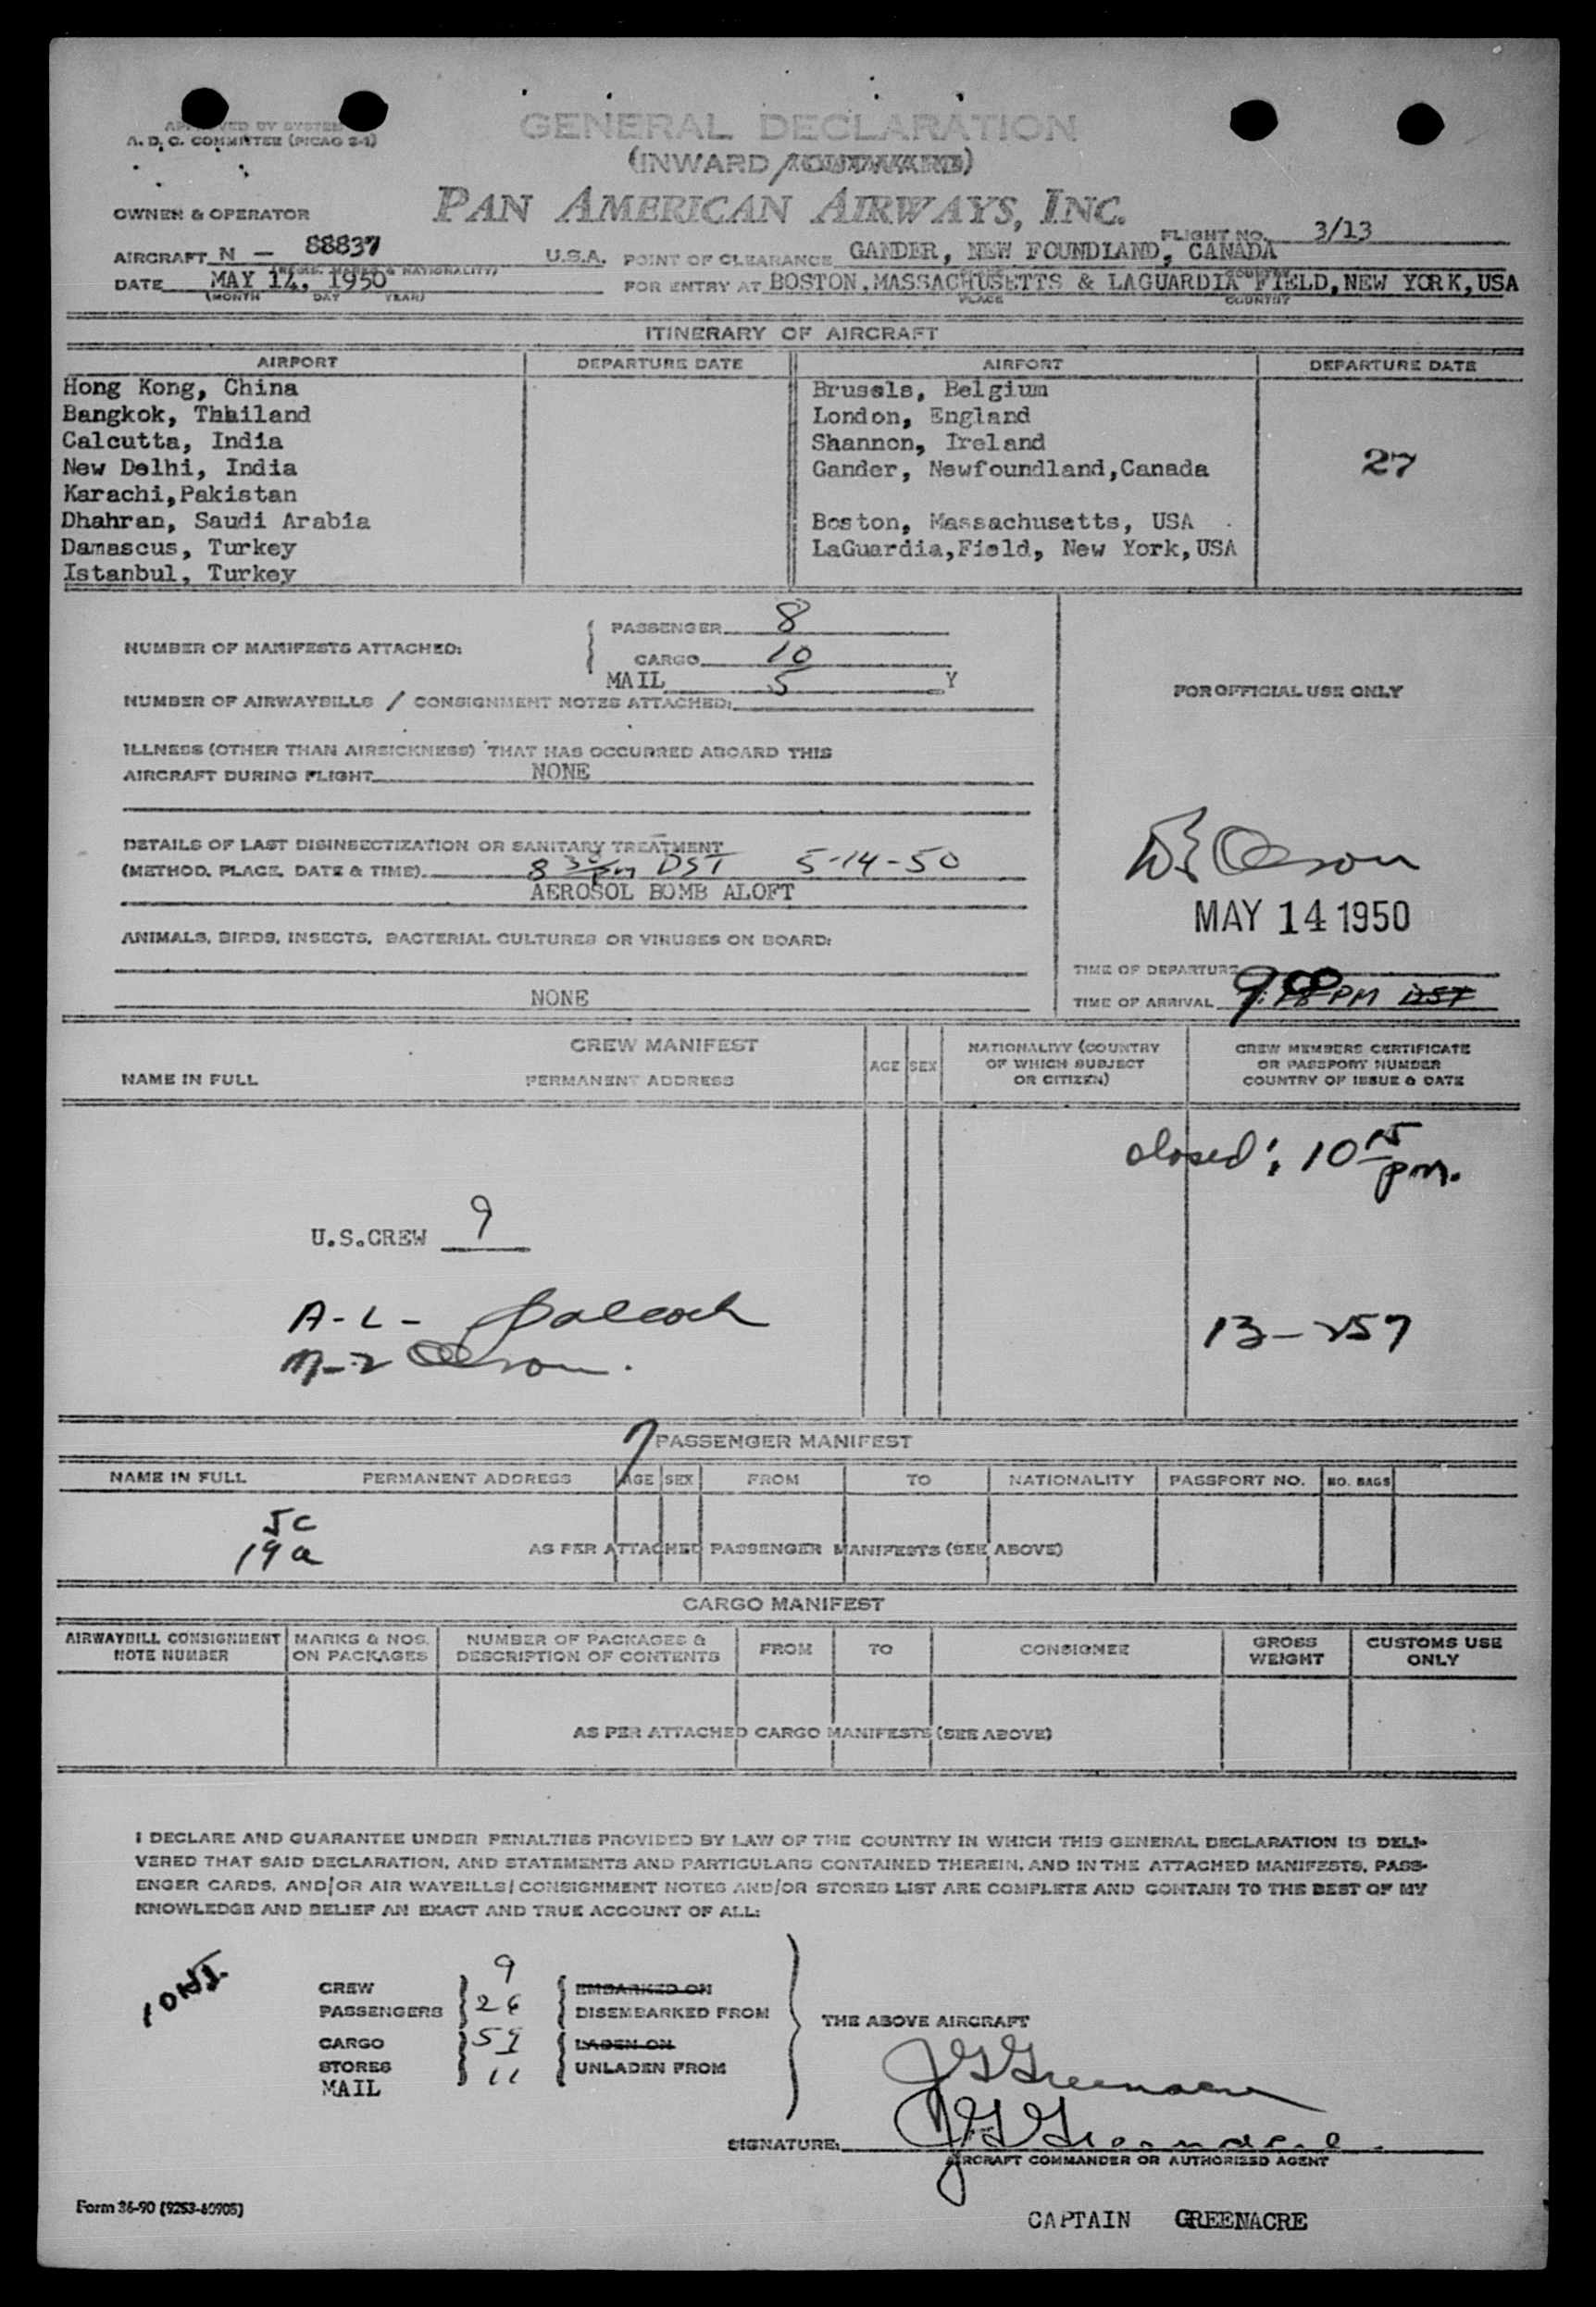 APPROVED BY SYSTEM
A. D. C. COMMITTEE (PICAO 2-1)
GENERAL DECLARATION
(INWARD/OUTWARD)
PAN AMERICAN AIRWAYS, INC.
OWNER & OPERATOR
FLIGHT NO. 3/13
AIRCRAFT N - 88837 U.S.A. POINT OF CLEARANCE GANDER, NEW FOUNDLAND, CANADA
(REGIS. MARKS & NATIONALITY) COUNTRY
DATE MAY 14, 1950 FOR ENTRY AT BOSTON, MASSACHUSETTS & LAGUARDIA FIELD, NEW YORK, USA
(MONTH DAY YEAR) PLACE COUNTRY
ITINERARY OF AIRCRAFT
AIRPORT DEPARTURE DATE AIRPORT DEPARTURE DATE
Hong Kong, China Brussls, Belgium
Bangkok, Thailand London, England
Calcutta, India Shannon, Ireland
New Delhi, India Gander, Newfoundland,Canada 27
Karachi,Pakistan
Dhahran, Saudi Arabia Boston, Massachusetts, USA
Damascus, Turkey LaGuardia,Field, New York,USA
Istanbul, Turkey
NUMBER OF MANIFESTS ATTACHED: PASSENGER 8
CARGO 10
MAIL 5 Y
NUMBER OF AIRWAYBILLS / CONSIGNMENT NOTES ATTACHED:
FOR OFFICIAL USE ONLY
ILLNESS (OTHER THAN AIRSICKNESS) THAT HAS OCCURRED ABOARD THIS
AIRCRAFT DURING FLIGHT NONE
DETAILS OF LAST DISINSECTIZATION OR SANITARY TREATMENT
(METHOD, PLACE, DATE & TIME). 8 30 pm DST 5-14-50
AEROSOL BOMB ALOFT
Olson
MAY 14 1950
ANIMALS, BIRDS, INSECTS, BACTERIAL CULTURES OR VIRUSES ON BOARD:
TIME OF DEPARTURE
NONE
TIME OF ARRIVAL 9 PM DST
CREW MANIFEST
NAME IN FULL PERMANENT ADDRESS AGE SEX NATIONALITY (COUNTRY OF WHICH SUBJECT OR CITIZEN) CREW MEMBERS CERTIFICATE OR PASSPORT NUMBER COUNTRY OF ISSUE & DATE
closed: 10 15 pm.
U.S.CREW 9
A-L-
13-257
Olson.
7
PASSENGER MANIFEST
NAME IN FULL PERMANENT ADDRESS AGE SEX FROM TO NATIONALITY PASSPORT NO. NO. BAGS
5c
19a AS PER ATTACHED PASSENGER MANIFESTS (SEE ABOVE)
CARGO MANIFEST
AIRWAYBILL CONSIGNMENT NOTE NUMBER MARKS & NOS. ON PACKAGES NUMBER OF PACKAGES & DESCRIPTION OF CONTENTS FROM TO CONSIGNEE GROSS WEIGHT CUSTOMS USE ONLY
AS PER ATTACHED CARGO MANIFESTS (SEE ABOVE)
I DECLARE AND GUARANTEE UNDER PENALTIES PROVIDED BY LAW OF THE COUNTRY IN WHICH THIS GENERAL DECLARATION IS DELI-
VERED THAT SAID DECLARATION, AND STATEMENTS AND PARTICULARS CONTAINED THEREIN, AND IN THE ATTACHED MANIFESTS, PASS-
ENGER CARDS, AND/OR AIR WAYBILLS/CONSIGNMENT NOTES AND/OR STORES LIST ARE COMPLETE AND CONTAIN TO THE BEST OF MY
KNOWLEDGE AND BELIEF AN EXACT AND TRUE ACCOUNT OF ALL:
CREW 9 EMBARKED ON
PASSENGERS 26 DISEMBARKED FROM
THE ABOVE AIRCRAFT
CARGO LADEN ON
STORES 11 UNLADEN FROM
MAIL
JG Greenacre
SIGNATURE: JG Greenacre
AIRCRAFT COMMANDER OR AUTHORISED AGENT
Form 36-90 (9253-60905)
CAPTAIN GREENACRE